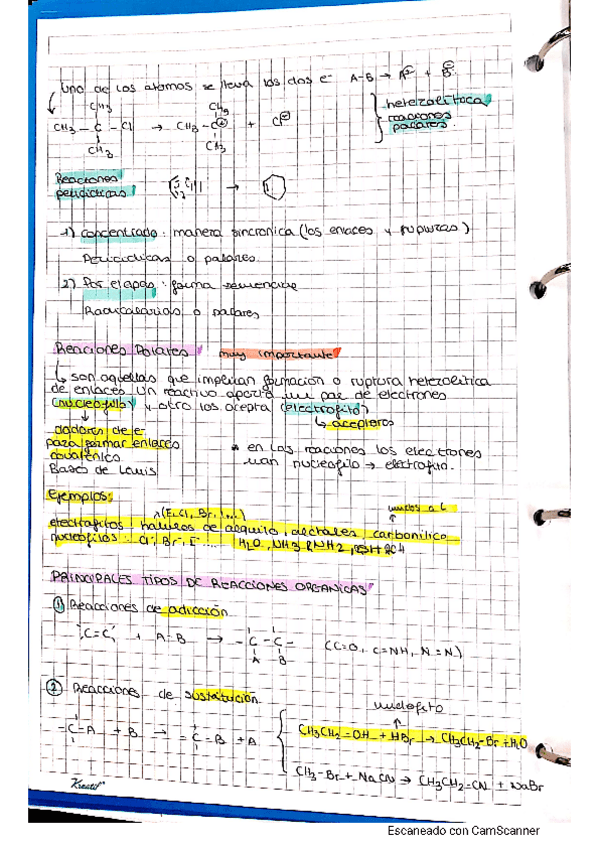 uno de los átomos se lleva los dos e- A-B → A⊖ + B
heterolítica
CH3 CH3
CH3 - C - Cl → CH3 - C⊕ + Cl⊖
reacciones polares
CH3 CH3
Reacciones
pericíclicas
1) concentrado: manera sincronica (los enlaces y rupturas)
Pericíclicas o polares.
2) Por etapas: forma
Radicalarias o polares
Reacciones Polares muy importante
↳ son aquellas que implican formación o ruptura heterolítica
de enlaces un reactivo aporta un par de electrones
(nucleofilo) y otro los acepta (electrofilo)
↓ ↳ aceptores
dadores de e-
para formar enlaces * en las reacciones los electrones
covalentes van nucleofilo → electrofilo.
Bases de Lewis
Ejemplos:
(F, Cl, Br, I...) unidos a C
electrofilos: haluros de alquilo, carbonílico
nucleofilos: Cl-, Br-, I- ... H2O, NH3, RNH2
PRINCIPALES TIPOS DE REACCIONES ORGANICAS
① Reacciones de adicción
C=C + A-B → - C - C - (C=O, C=NH, N=N)
A B
② Reacciones de sustitución
nucleofilo
-C-A + B → =C-B + A
CH3CH2=OH + HBr → CH3CH2-Br + H2O
CH3-Br + NaCN → CH3CH2-CN + NaBr
Escaneado con CamScanner